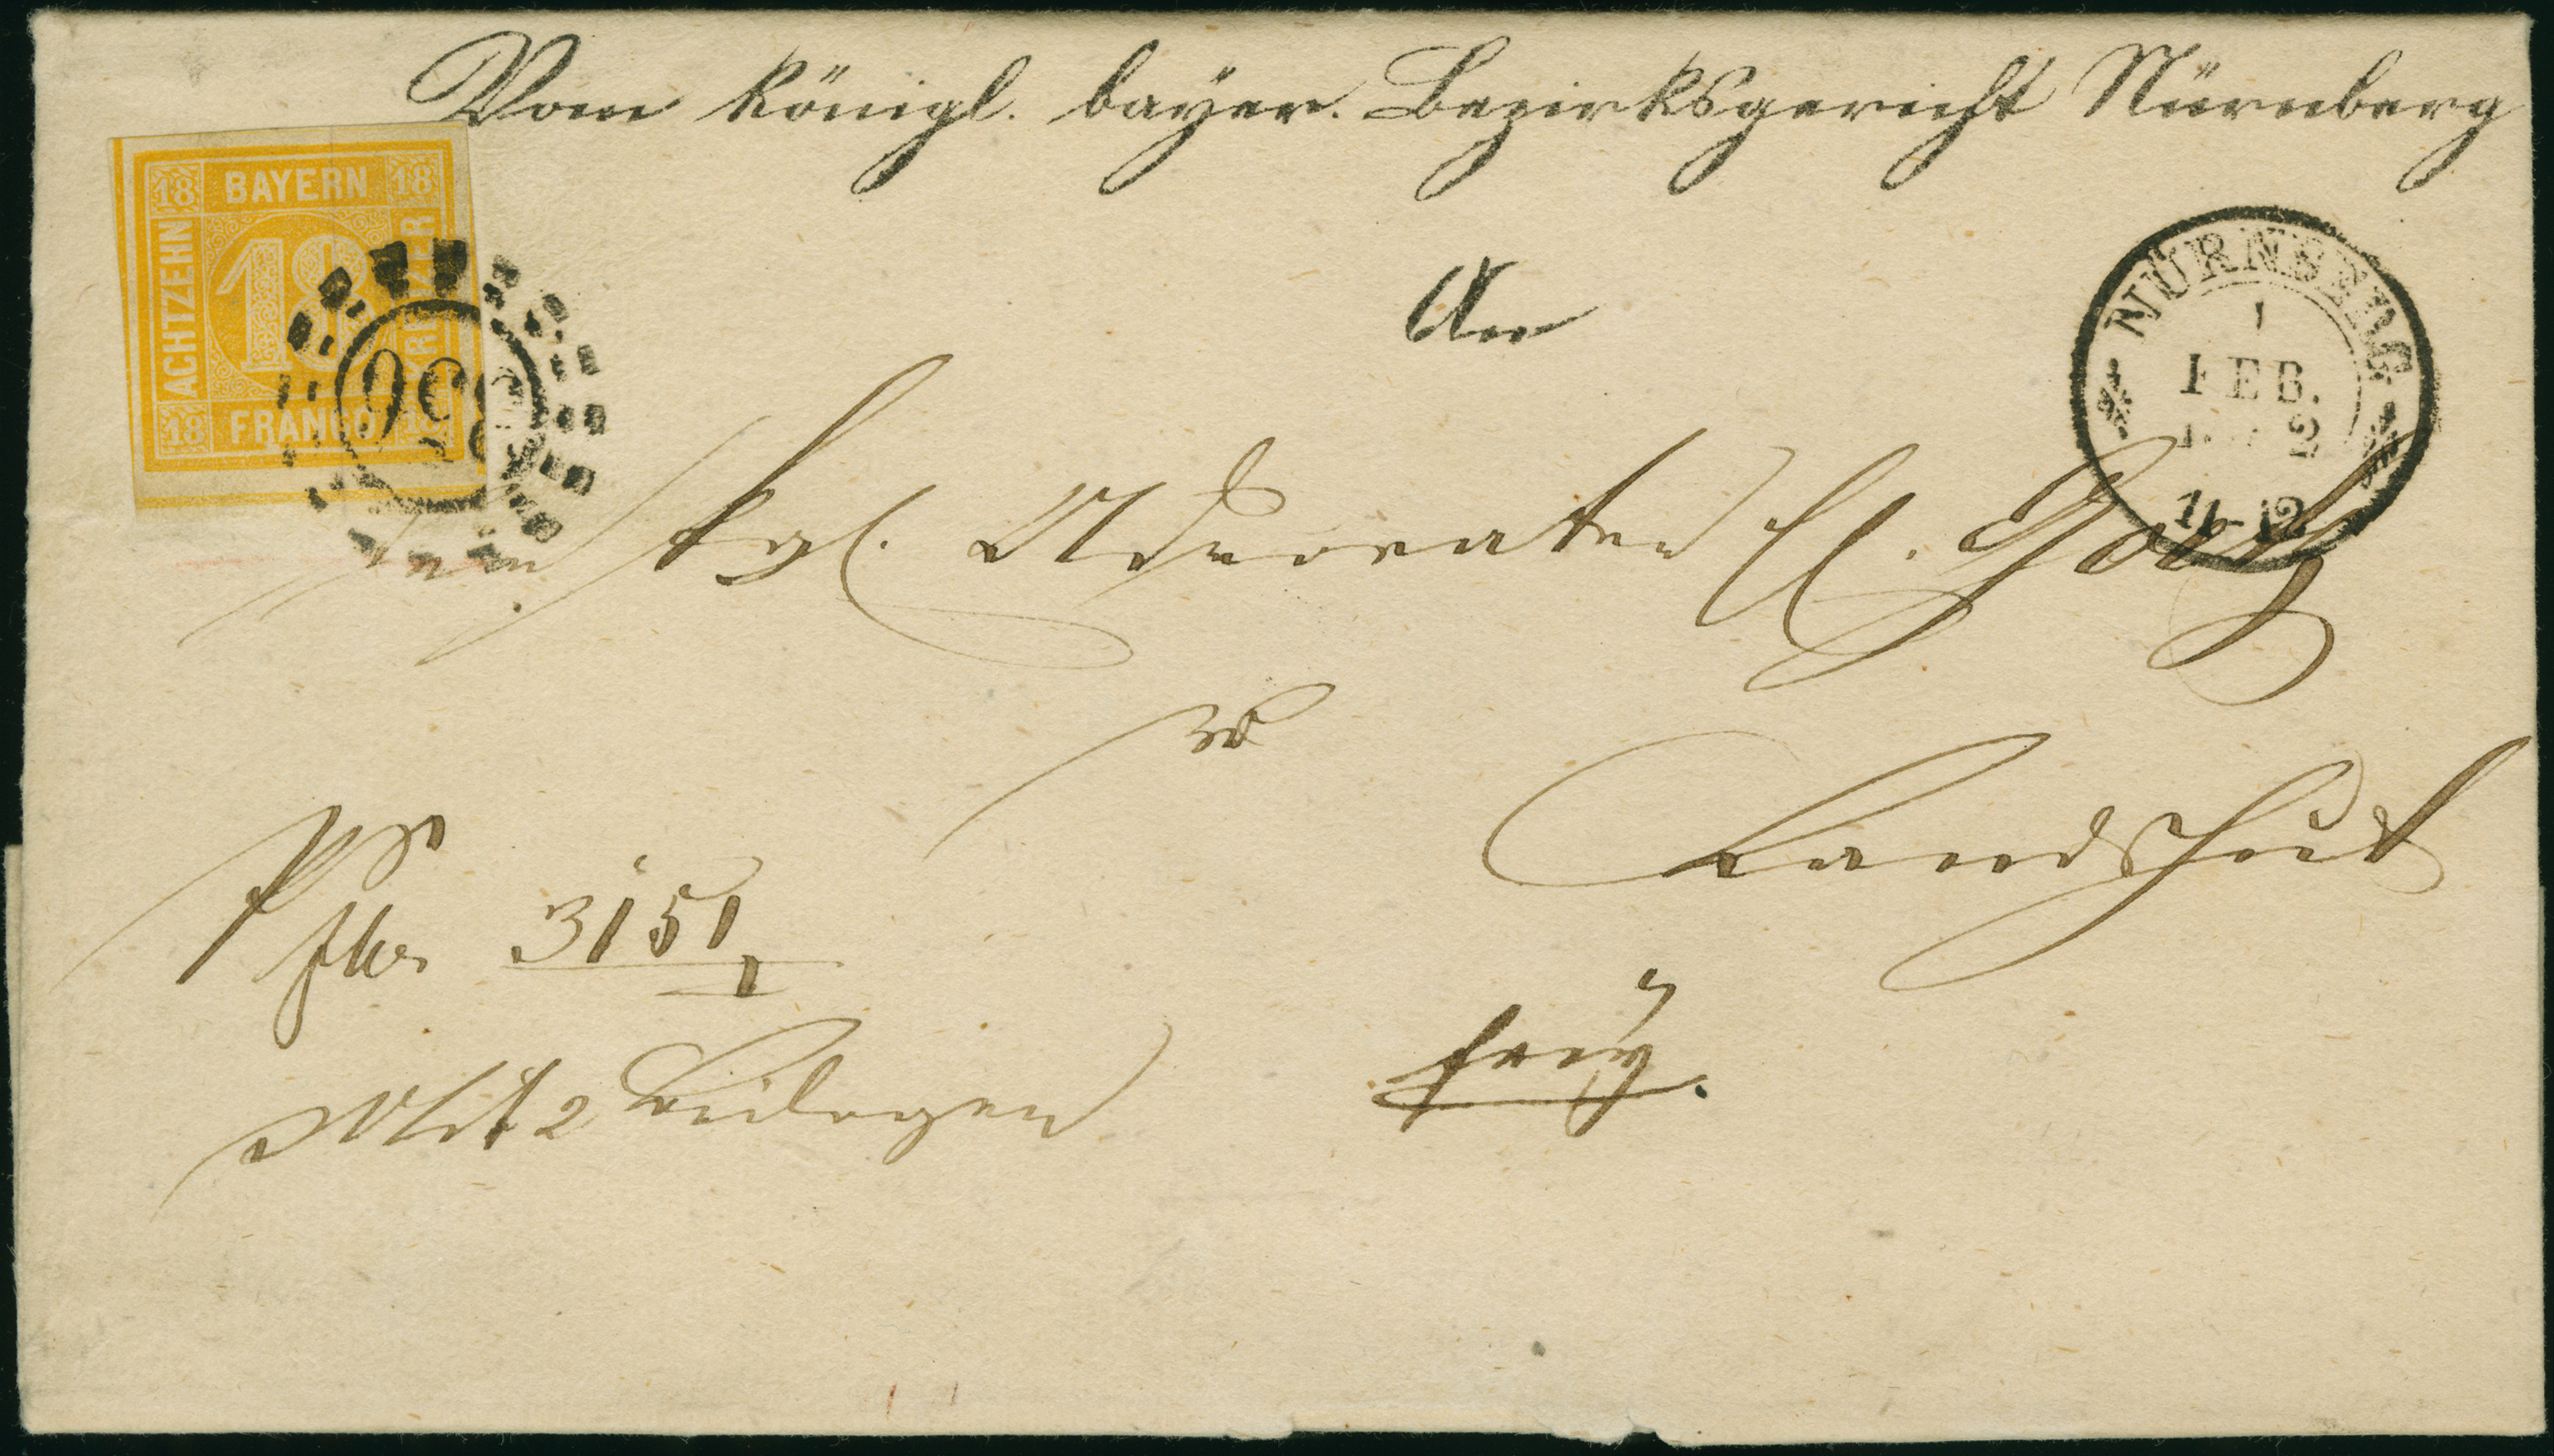 Vom Königl. bayer. Bezirksgericht Nürnberg
18 BAYERN 18
ACHTZEHN
18
KREUZER
18 FRANCO 18
356
An
NÜRNBERG
1
FEB.
2
11-12
den kgl. Advocaten H.
zu
Landshut
3151
I
Mit 2 Beilagen
frey.